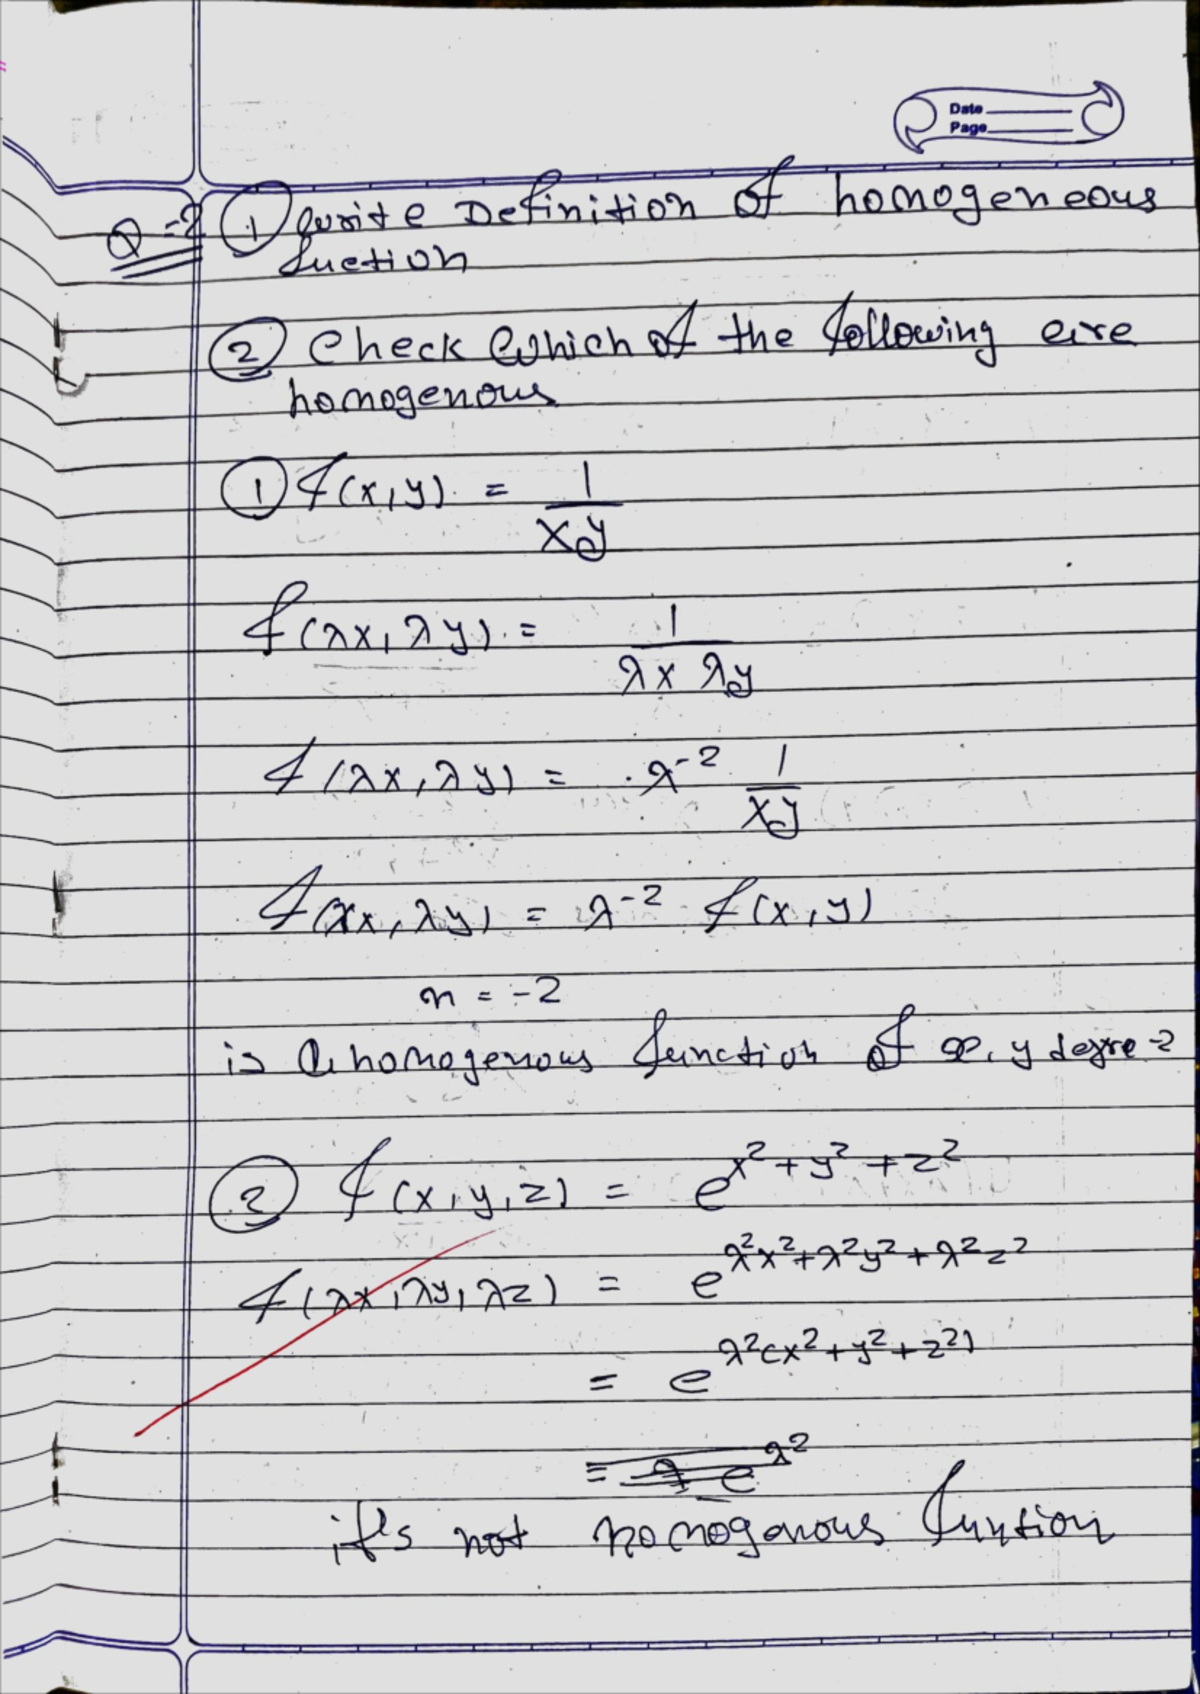 Date
Page
Q=2 ① write Definition of homogeneous
fuction
② Check which of the following are
homogenous
① f(x,y) = 1/xy
f(λx, λy) = 1/λx λy
f(λx, λy) = λ⁻² 1/xy
f(λx, λy) = λ⁻² f(x,y)
n = -2
is a homogenous function of x, y degre -2
② f(x,y,z) = e^x²+y²+z²
f(λx, λy, λz) = e^λ²x²+λ²y²+λ²z²
= e^λ²(x²+y²+z²)
= λ e^λ²
it's not homogenous funtion